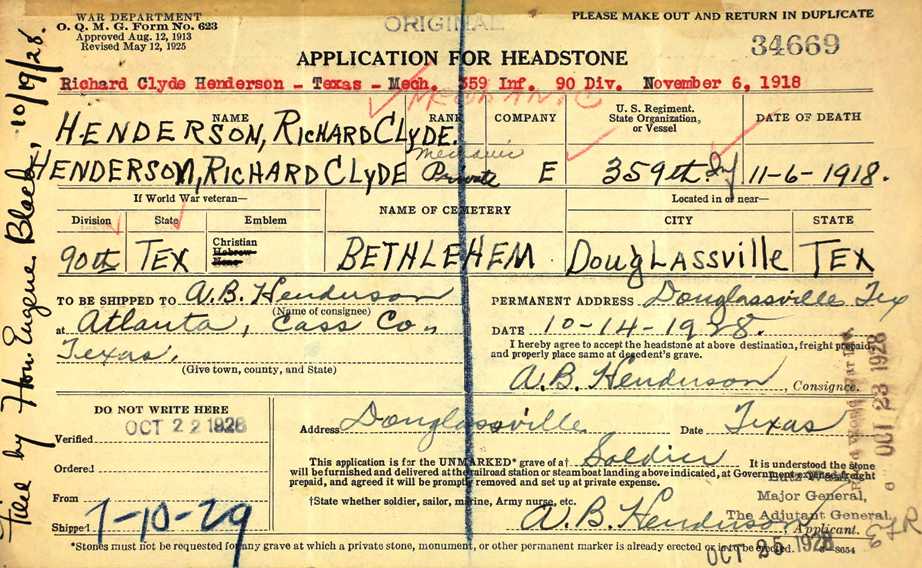 WAR DEPARTMENT
O. Q. M. G. FORM No. 623
Approved Aug. 12, 1913
Revised May 12, 1925
ORIGINAL
PLEASE MAKE OUT AND RETURN IN DUPLICATE
34669
APPLICATION FOR HEADSTONE
Richard Clyde Henderson - Texas - Mech. 359 Inf. 90 Div. November 6, 1918
MECHANIC
NAME RANK COMPANY U. S. Regiment, State Organization, or Vessel DATE OF DEATH
HENDERSON, RICHARD CLYDE.
Mechanic
HENDERSON, RICHARD CLYDE Private E 359th Inf 11-6-1918.
If World War veteran—
NAME OF CEMETERY
Located in or near—
Division State Emblem CITY STATE
90th TEX Christian Hebrew None BETHLEHEM DOUGLASSVILLE TEX
TO BE SHIPPED TO A.B. Henderson
(Name of consignee)
at Atlanta, Cass Co.,
Texas.
(Give town, county, and State)
PERMANENT ADDRESS Douglassville Tex
DATE 10-14-1928.
I hereby agree to accept the headstone at above destination, freight prepaid,
and properly place same at decedent's grave.
A.B. Henderson, Consignee.
DO NOT WRITE HERE
Verified OCT 22 1928
Ordered
From
Shipped 7-10-29
Address Douglassville Date Texas
This application is for the UNMARKED* grave of a† Soldier It is understood the stone
will be furnished and delivered at the railroad station or steamboat landing above indicated, at Government expense, freight
prepaid, and agreed it will be promptly removed and set up at private expense.
†State whether soldier, sailor, marine, Army nurse, etc.
Lutz Wahl,
Major General,
The Adjutant General,
A.B. Henderson, Applicant.
*Stones must not be requested for any grave at which a private stone, monument, or other permanent marker is already erected or is to be erected. 3-8654
OCT 25 1928
OCT 23 1928
Filed by Hon. Eugene Black, 10/19/28.